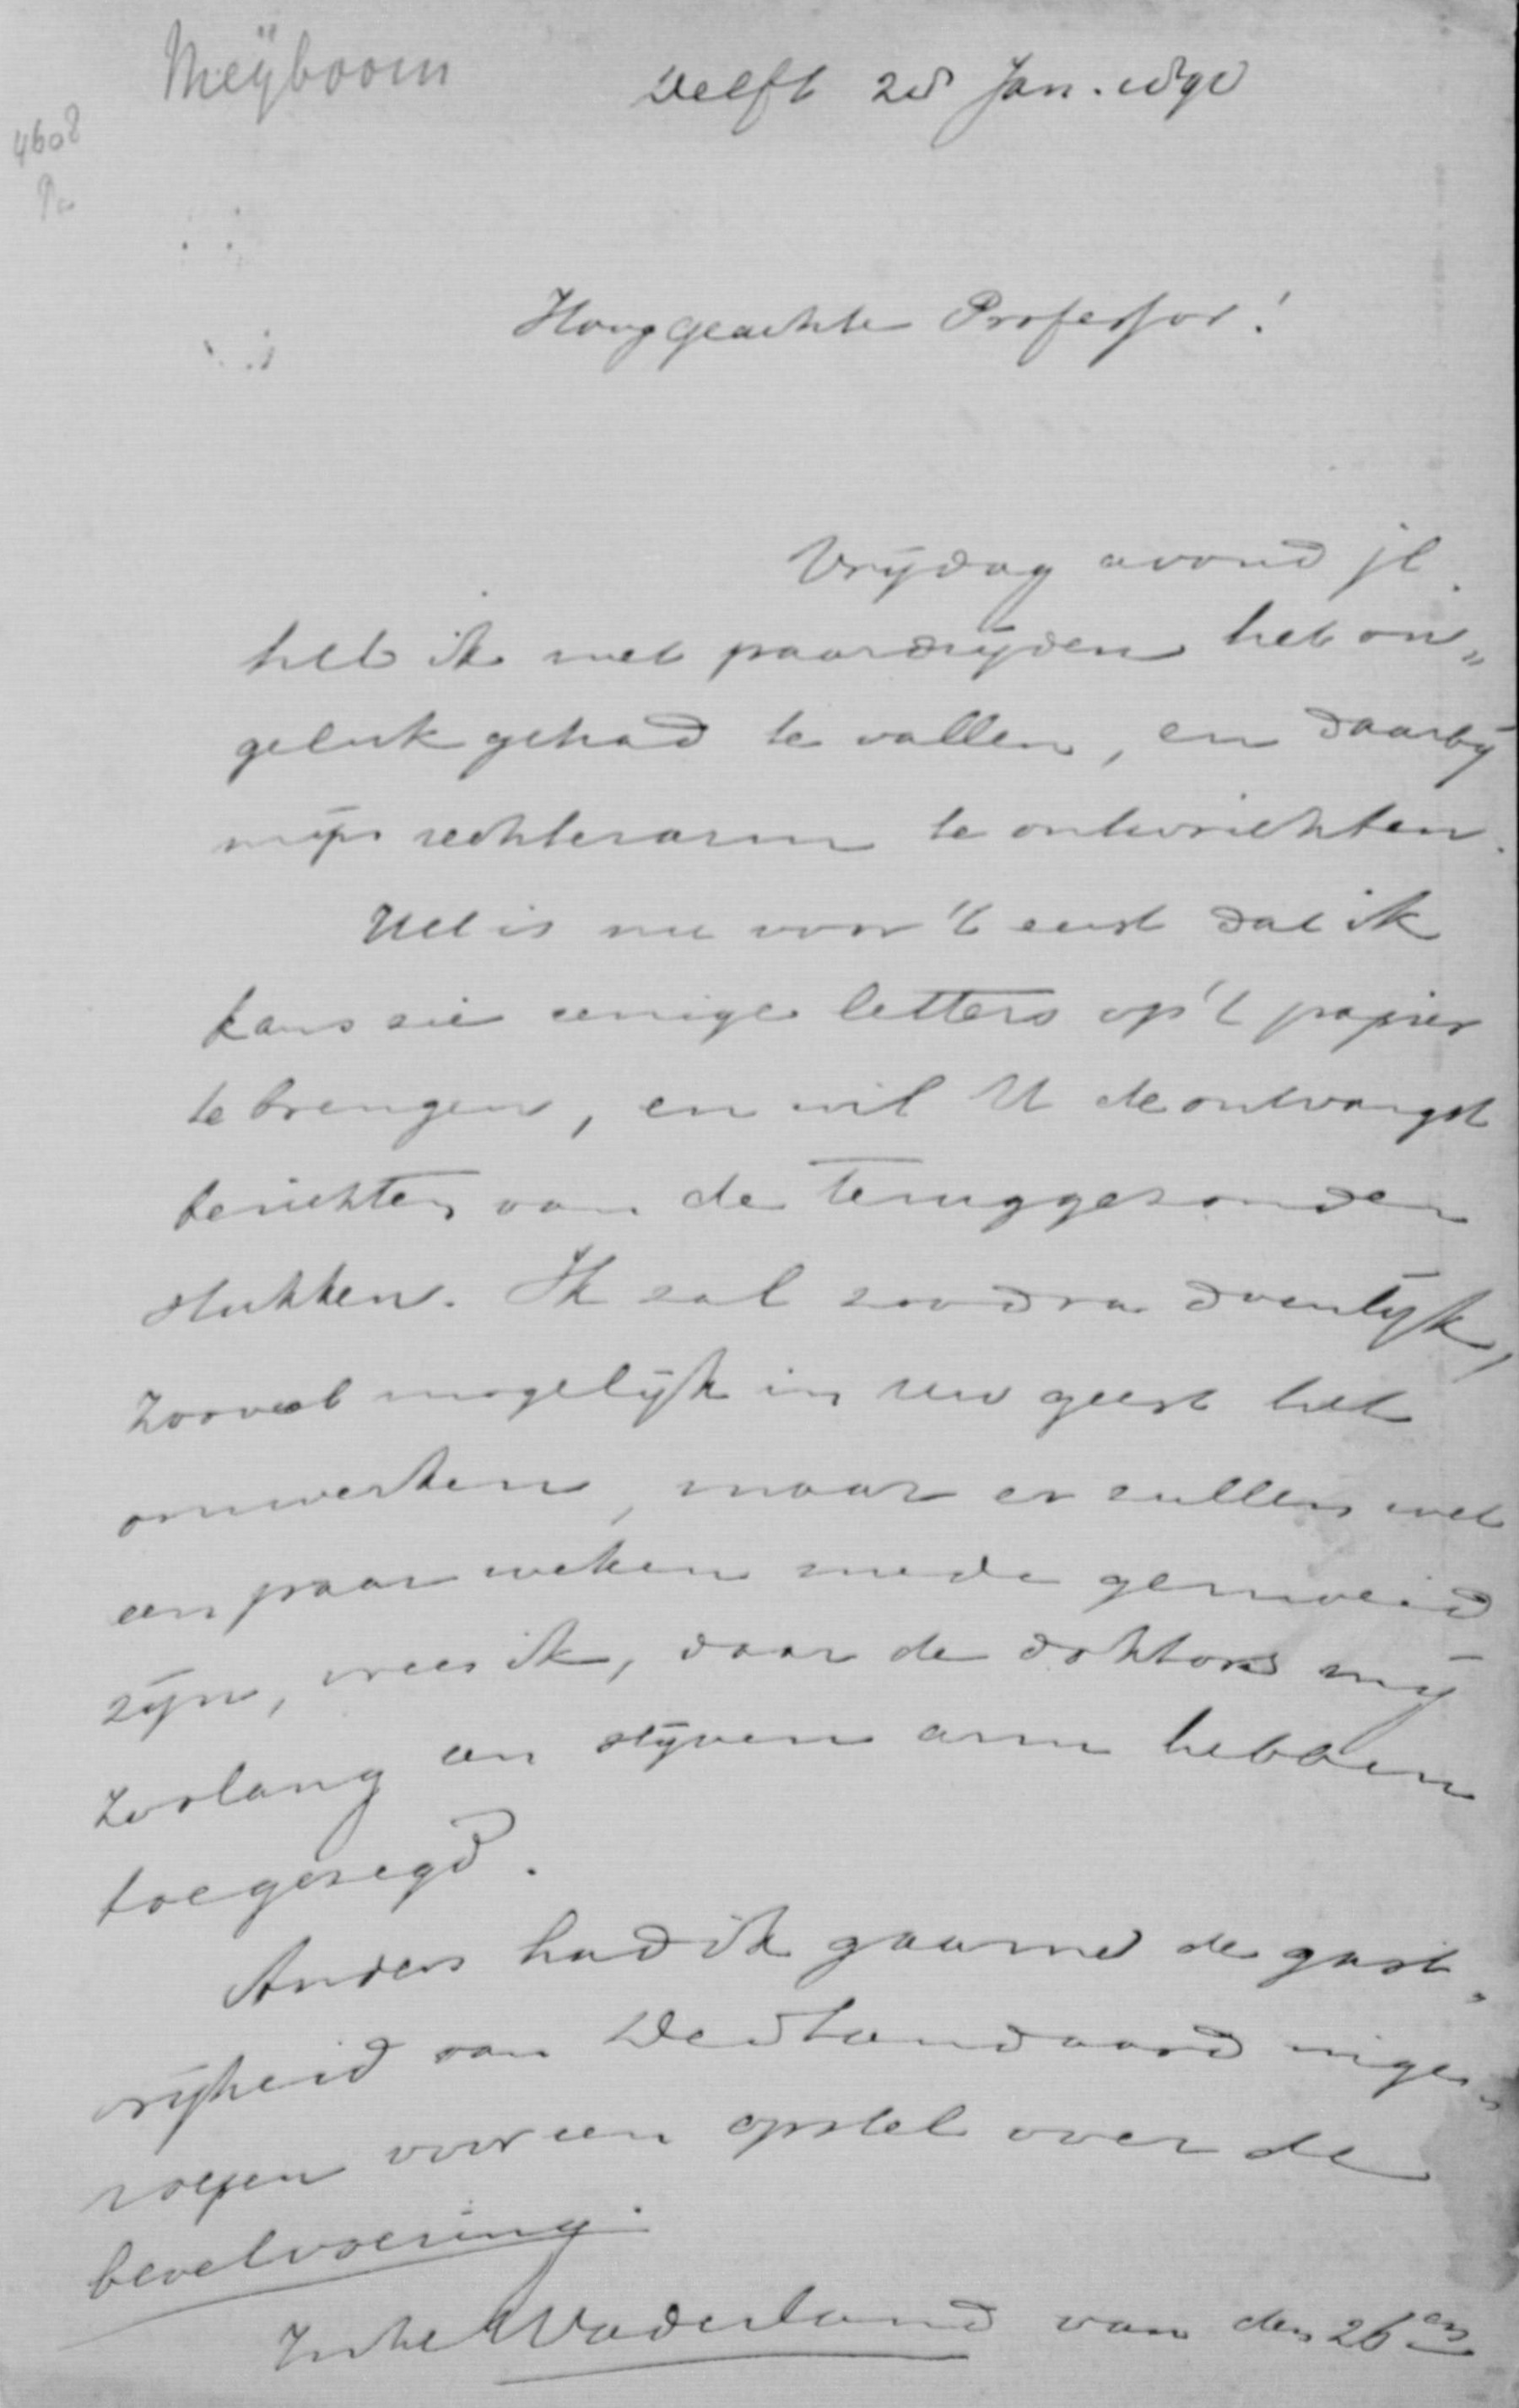 Meÿboom
Delft 28 Jan. 1890
4608
Hooggeachte Professor!
Vrÿdag avond jl.
heb ik met paardrÿden het on„
geluk gehad te vallen, en daarbÿ
mÿn rechterarm te ontwrichten.
Het is nu voor 't eerst dat ik
kans zie eenige letters op 't papier
te brengen, en wil U de ontvangst
berichten van de teruggezonden
stukken. Ik zal zoodra doenlÿk,
zooveel mogelÿk in uw geest het
omwerken, maar er zullen wel
een paar weken mede gemoeid
zÿn, vrees ik, daar de doktors mÿ
zoolang een stÿven arm hebben
toegezegd.
Anders had ik gaarne de gast„
vrÿheid van De Standaard inge„
roepen voor een opstel over de
bevelvoering.
In het Vaderland van den 26en